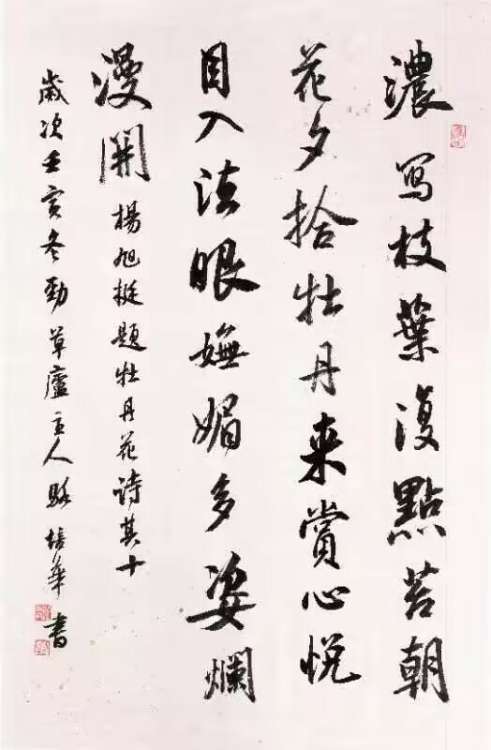 濃写枝葉復點苔朝
花夕拾牡丹来賞心悦
目入法眼嫵媚多姿爛
漫開楊旭挺題牡丹花詩其十
歲次壬寅冬勁草廬主人駱培華書